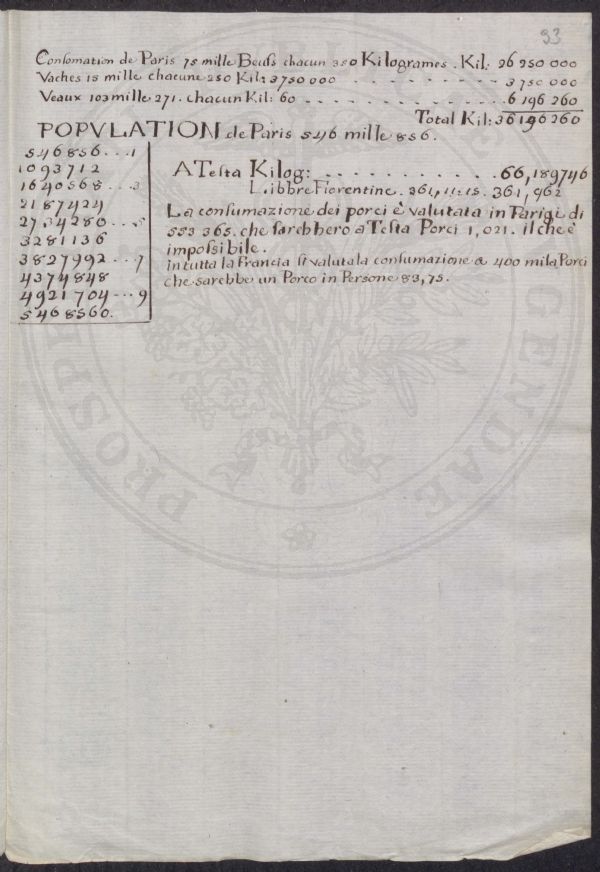 93
Consomation de Paris 75 mille Beufs chacun 350 Kilogrames. Kil: 26 250 000
Vaches 15 mille chacune 250 Kil: 3750 000 - - - - - - - - - - 3 750 000
Veaux 103 mille 271. chacun Kil: 60 - - - - - - - - - - - - 6 196 260
Total Kil: 36 196 260
POPVLATION de Paris 546 mille 856.
546856 ... 1
1093712
1640568 ... 3
2187424
2734280 ... 5
3281136
3827992 ... 7
4374848
4921704 ... 9
5468560.
A Testa Kilog: - - - - - - - - - - - 66,189746
Libbre Fiorentine. 361,11:15. 361,962
La consumazione dei porci è valutata in Parigi di
553 365. che sarebbero a Testa Porci 1,021. il che è
impossibile.
in tutta la Francia si valuta la consumazione a 400 mila Porci
che sarebbe un Porco in Persone 83,75.
PROSPE CENDAE